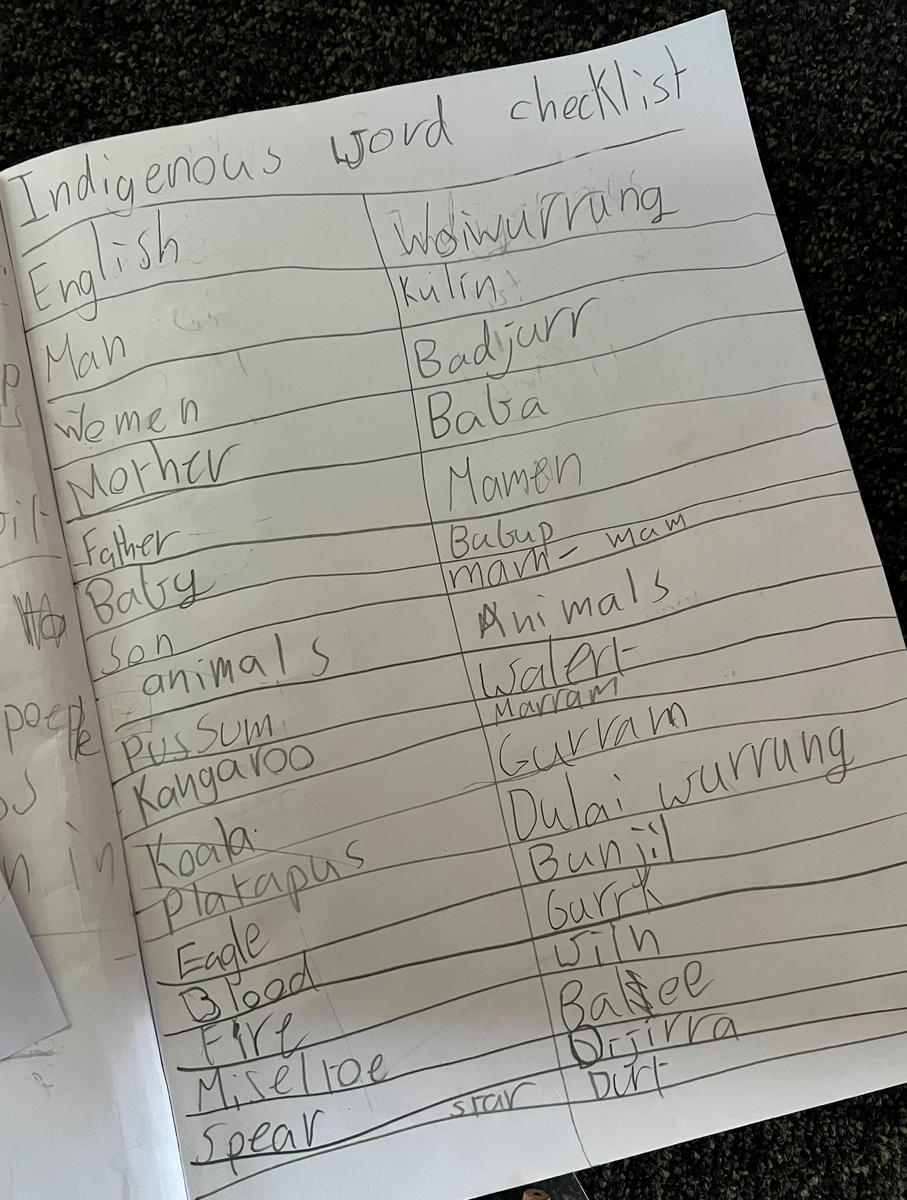 Indigenous word checklist
English Woiwurrung
Man Kulin
Women Badjurr
Morher Baba
Father Mamen
Baby Bubup
Son mam - mam
animals Animals
Pussum Walert
Kangaroo Marram
Koala Gurram
Platapus Dulai wurrung
Eagle Bunjil
Blood Gurrk
Fire Wiln
Miseltoe Balee
Spear Djirra
star Durt
poeple
in